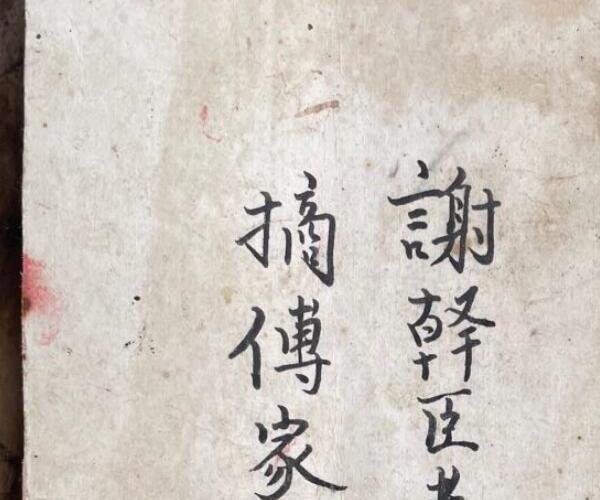 謝幹臣
摘傳家